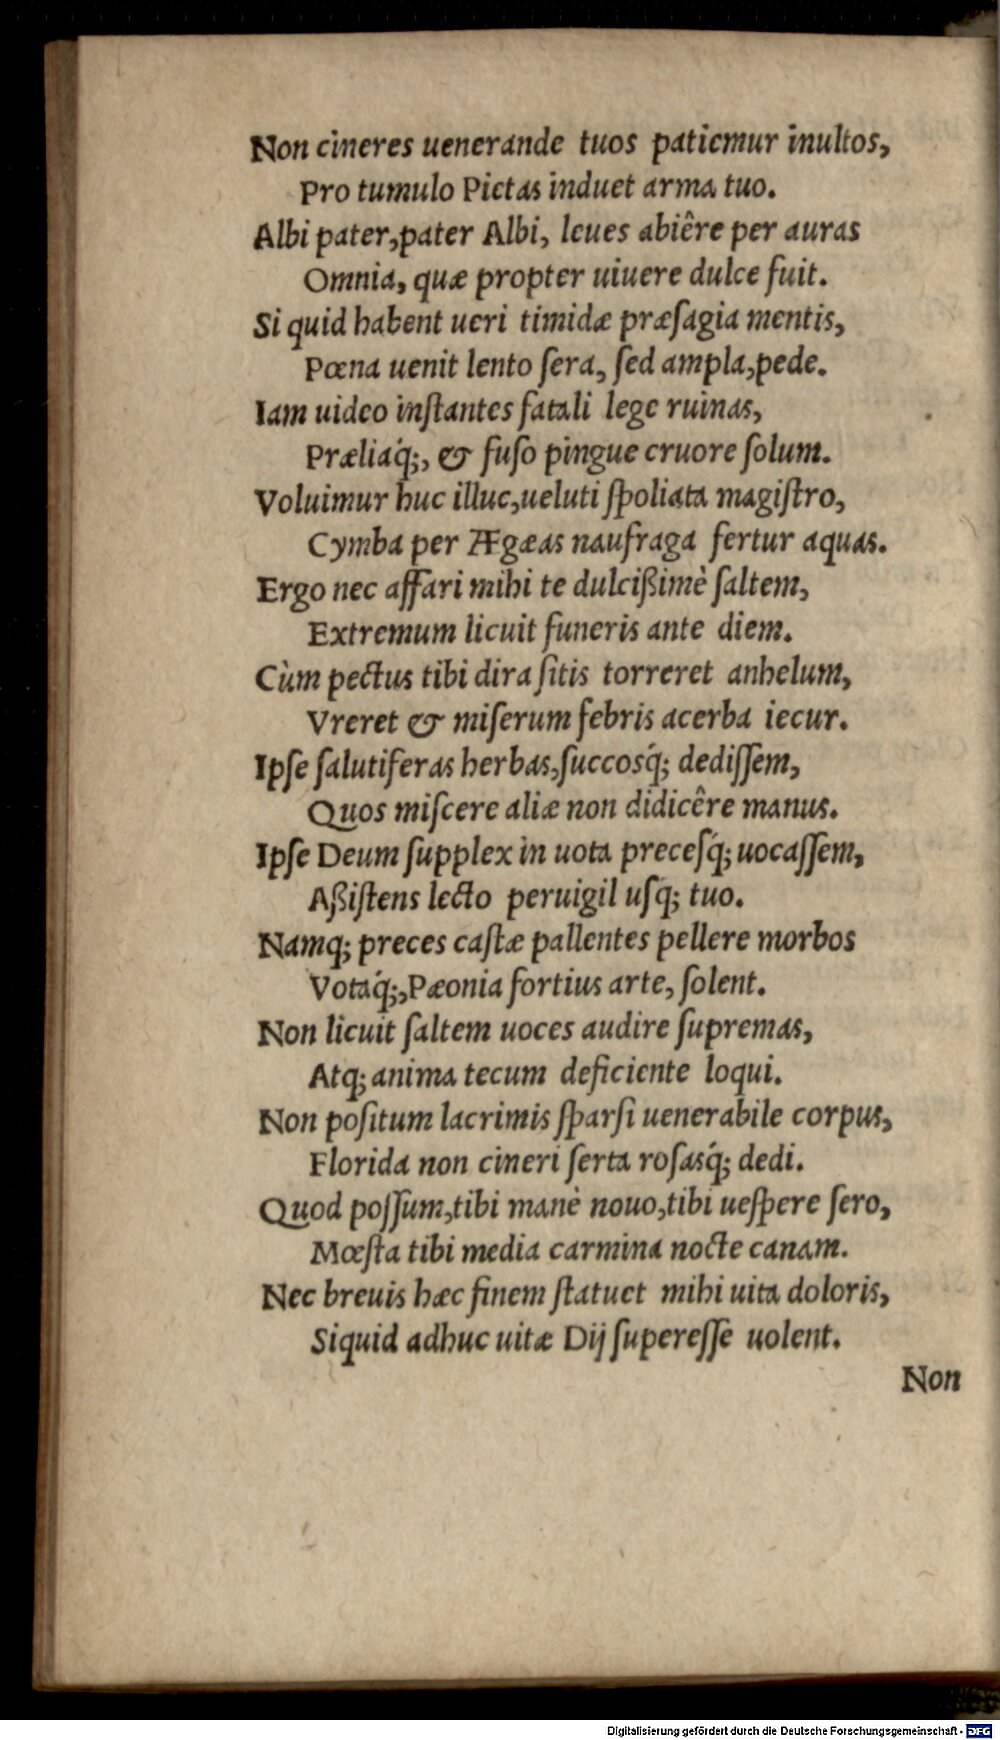 Non cineres uenerande tuos patiemur inultos,
Pro tumulo Pietas induet arma tuo.
Albi pater, pater Albi, leues abiêre per auras
Omnia, quæ propter uiuere dulce fuit.
Si quid habent ueri timidæ præſagia mentis,
Pœna uenit lento ſera, ſed ampla, pede.
Iam uideo inſtantes fatali lege ruinas,
Præliaq́;, & fuſo pingue cruore ſolum.
Voluimur huc illuc, ueluti ſpoliata magiſtro,
Cymba per Ægæas naufraga fertur aquas.
Ergo nec affari mihi te dulcißimè ſaltem,
Extremum licuit funeris ante diem.
Cùm pectus tibi dira ſitis torreret anhelum,
Vreret & miſerum febris acerba iecur.
Ipſe ſalutiferas herbas, ſuccosq́; dediſſem,
Quos miſcere aliæ non didicêre manus.
Ipſe Deum ſupplex in uota preceſq́; uocaſſem,
Aßiſtens lecto peruigil uſq́; tuo.
Namq; preces caſtæ pallentes pellere morbos
Votaq́;, Pæonia fortius arte, ſolent.
Non licuit ſaltem uoces audire ſupremas,
Atq; anima tecum deficiente loqui.
Non poſitum lacrimis ſparſi uenerabile corpus,
Florida non cineri ſerta roſasq́; dedi.
Quod poſſum, tibi manè nouo, tibi ueſpere ſero,
Mœſta tibi media carmina nocte canam.
Nec breuis hæc finem ſtatuet mihi uita doloris,
Siquid adhuc uitæ Dij ſupereſſe uolent.
Non
Digitalisierung gefördert durch die Deutsche Forschungsgemeinschaft - DFG